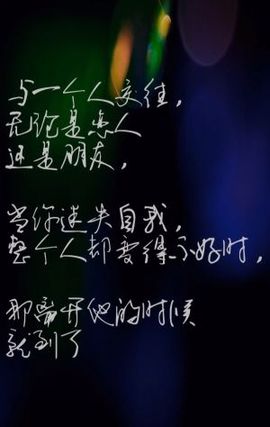 与一个人交往，
无论是恋人
还是朋友，
当你迷失自我，
整个人都变得不好时，
那离开他的时候
就到了